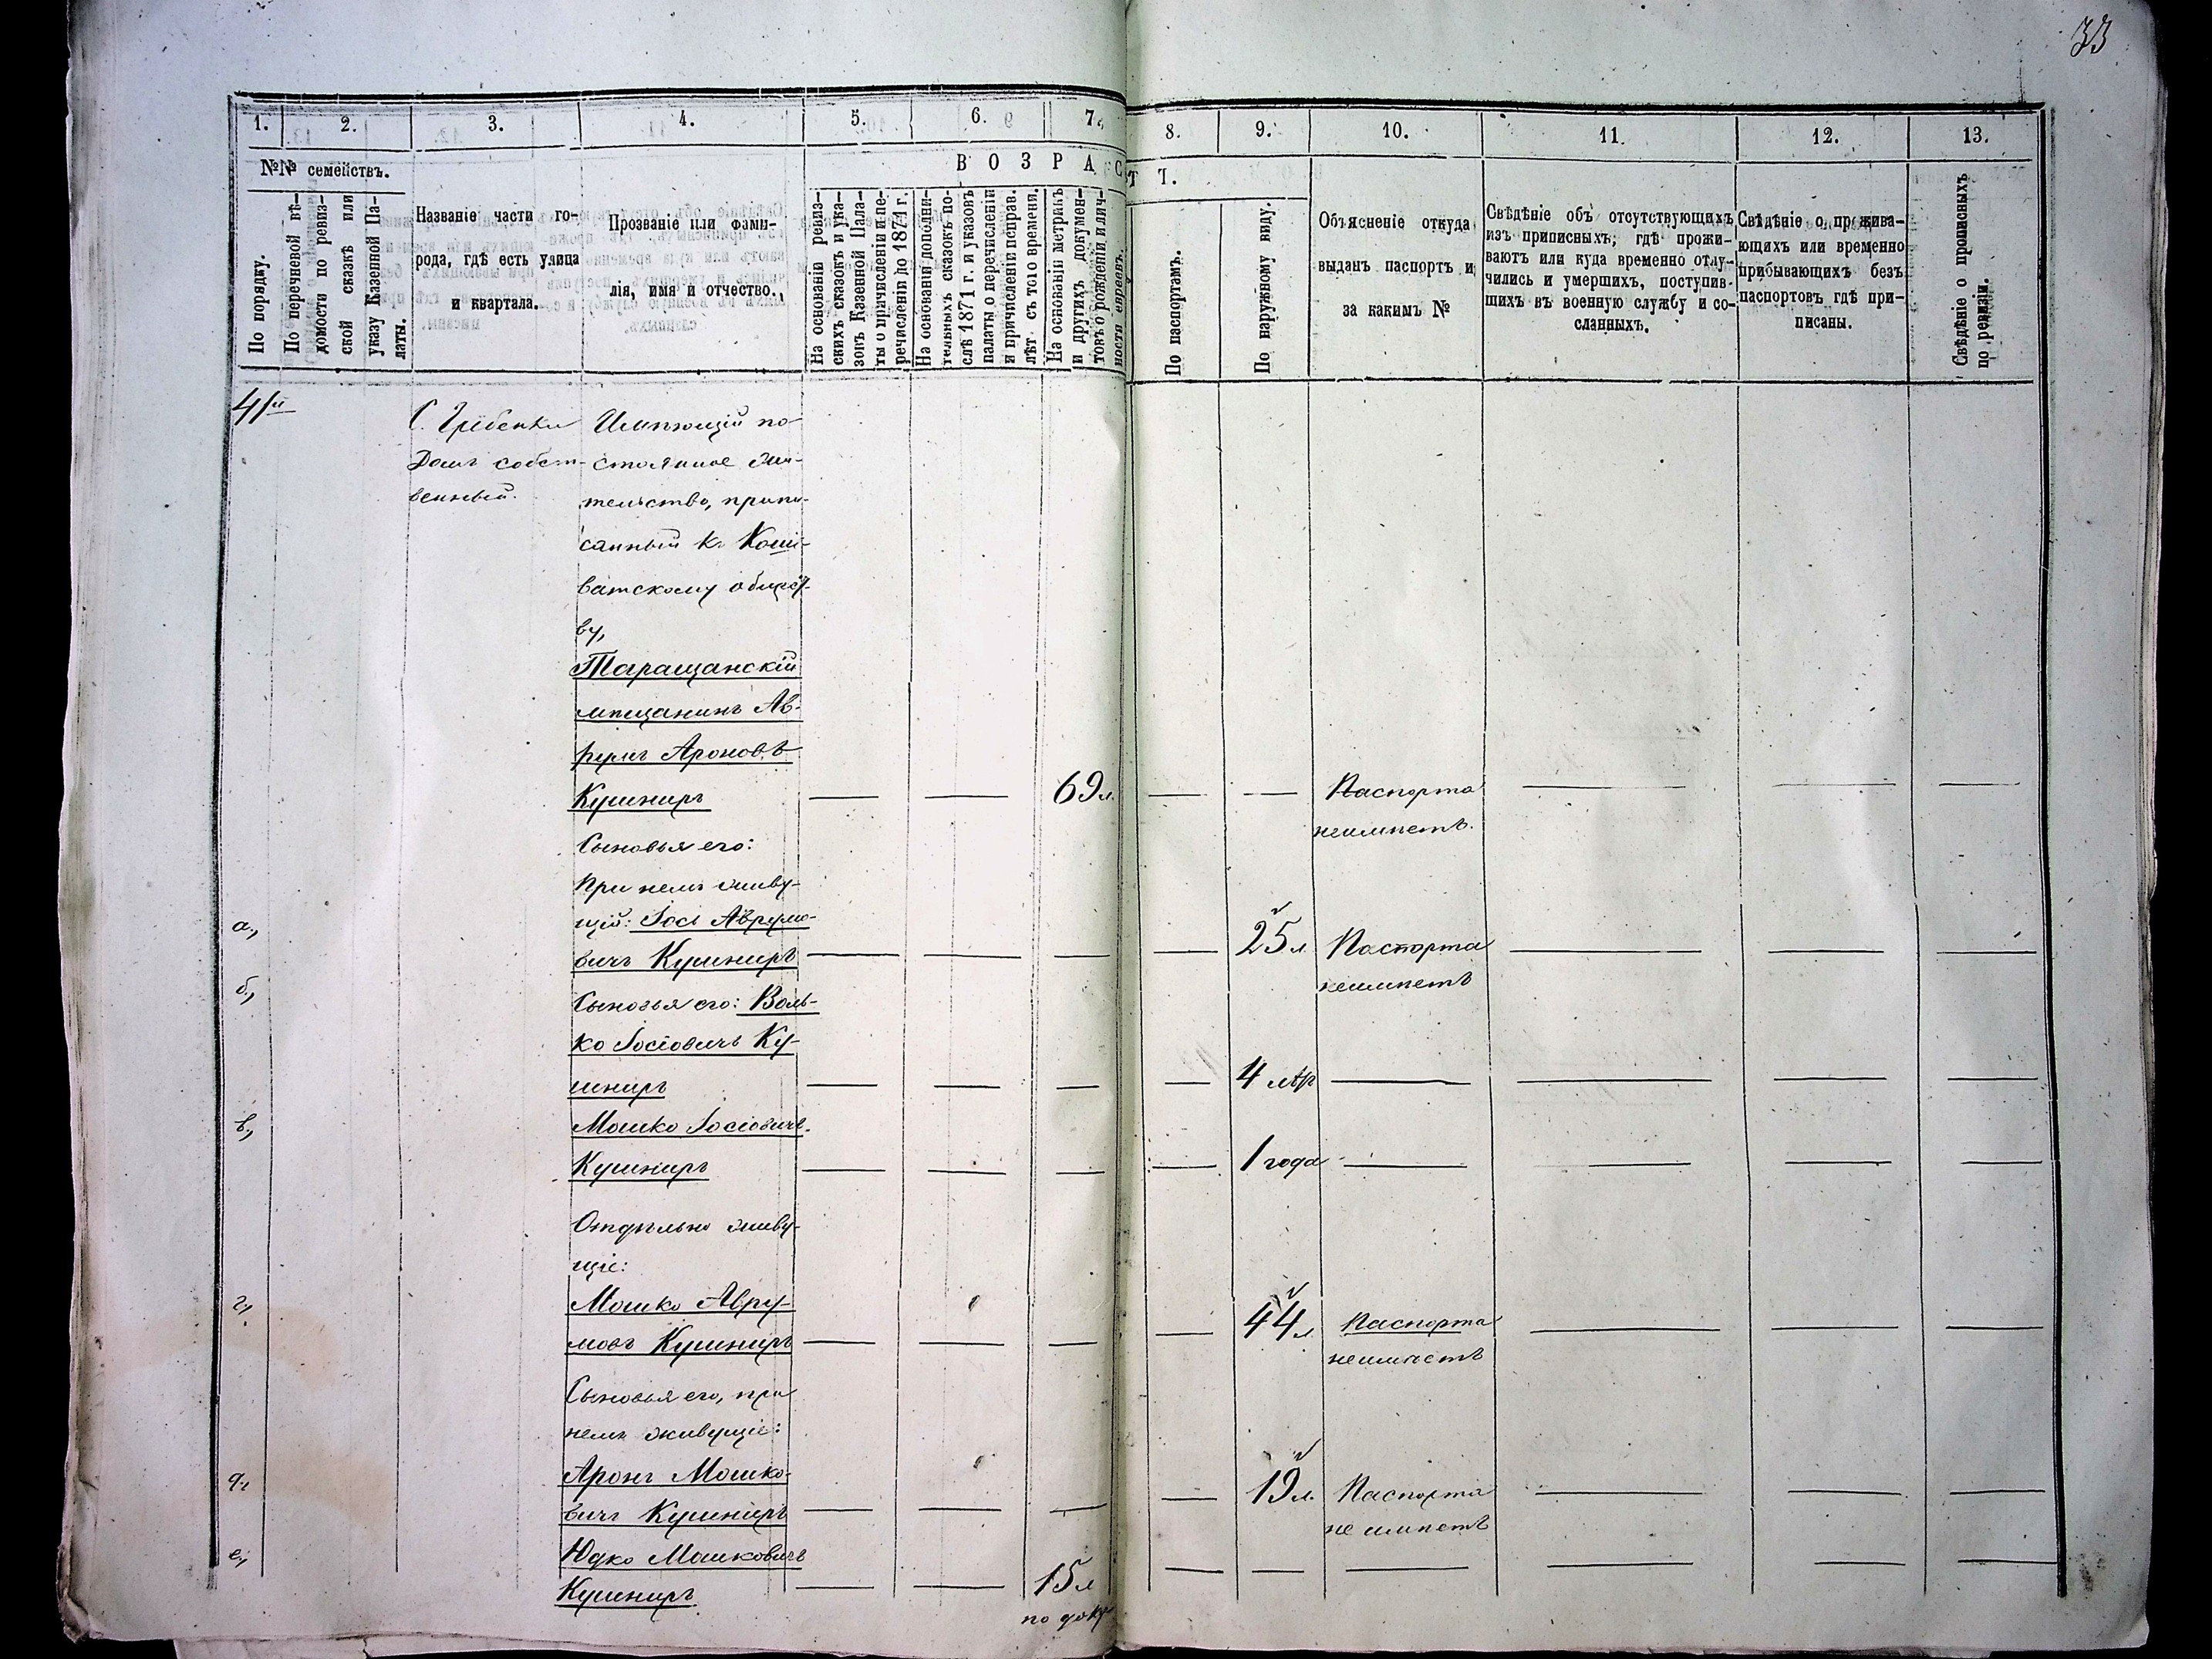 33
1. 2. 3. 4. 5. 6. 7. 8. 9. 10. 11. 12. 13.
№№ семействъ.
В О З Р А С Т Ъ.
По порядку.
По перечневой вѣ-
домости по ревиз-
ской сказкѣ или
указу Казенной Па-
латы.
Названіе части го-
рода, гдѣ есть улица
и квартала.
Прозваніе или фами-
лія, имя и отчество.
На основаніи ревиз-
скихъ сказокъ и ука-
зовъ Казенной Пала-
ты о причисленіи и пе-
речисленіи до 1871 г.
На основаніи дополни-
тельныхъ сказокъ по-
слѣ 1871 г. и указовъ
палаты о перечисленіи
и причисленіи исправ.
лѣт съ того времени.
На основаніи метрикъ
и другихъ докумен-
товъ о рожденіи и лич-
ности евреевъ.
По паспортамъ.
По наружному виду.
Объясненіе откуда
выданъ паспортъ и
за какимъ №
Свѣдѣніе объ отсутствующихъ
изъ приписныхъ; гдѣ прожи-
ваютъ или куда временно отлу-
чились и умершихъ, поступив-
шихъ въ военную службу и со-
сланныхъ.
Свѣдѣніе о прожива-
ющихъ или временно
прибывающихъ безъ
паспортовъ гдѣ при-
писаны.
Свѣдѣніе о прописныхъ
по ревизіи.
41й
С. Гребенки
Домъ собст-
венный.
Имѣющій по-
стоянное жи-
тельство, припи-
санный къ Коши-
ватскому общест-
ву,
Таращанскій
мѣщанинъ Ав-
румъ Ароновъ
Кушниръ — — 69 л. — — Паспорта — — —
неимѣетъ.
Сыновья его:
При немъ живу-
а., щій: Іосі Аврумо-
вичъ Кушниръ — — — — 25 л. Паспорта — — —
неимѣетъ
б., Сыновья его: Воль-
ко Іосіовичъ Ку-
шниръ — — — — 4 лѣтъ — — — —
в., Мошко Іосіовичъ
Кушниръ — — — — 1 года — — — —
Отдѣльно живу-
щіе:
г., Мошко Авру-
мовъ Кушниръ — — — — 44 л. Паспорта — — —
неимѣетъ
Сыновья его, при
немъ живущіе:
д., Аронъ Мошко-
вичъ Кушниръ — — — — 19 л. Паспорта — — —
не имѣетъ
е., Юдко Мошковичъ
Кушниръ — — 15 л — — — — — —
по доку